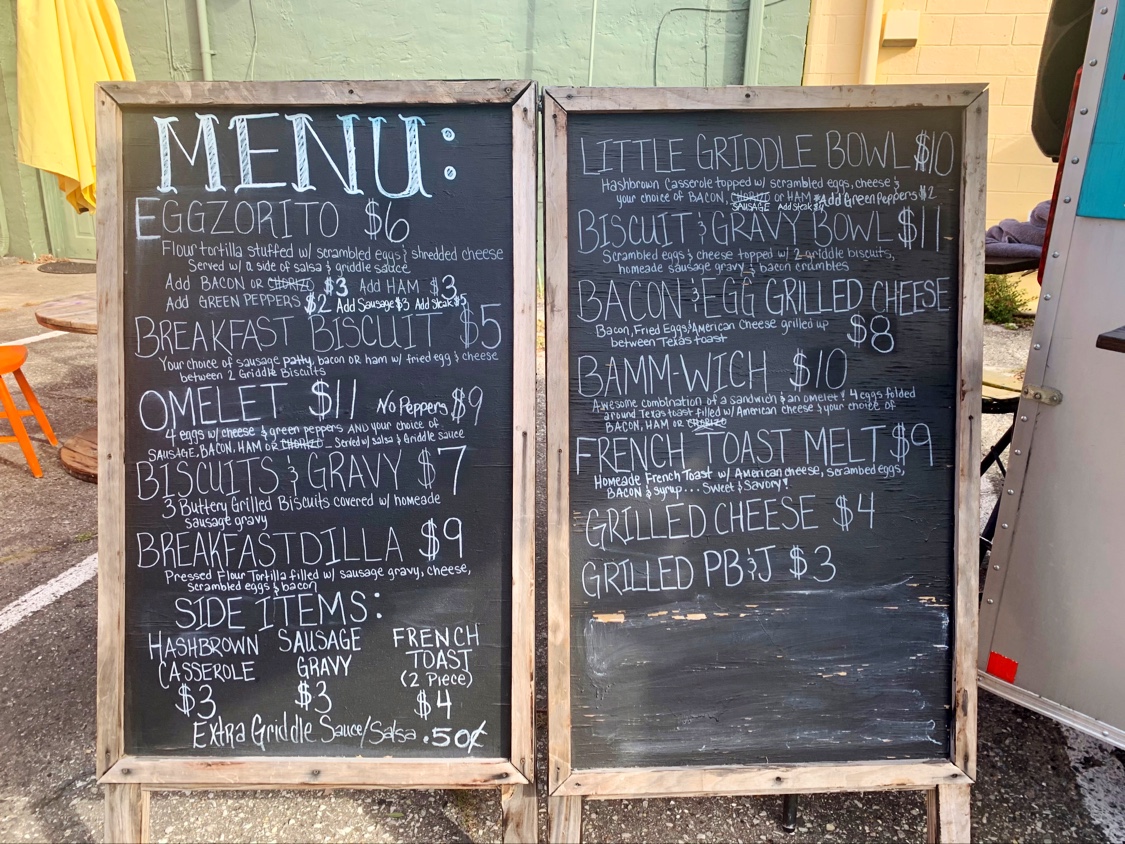 MENU:
EGGZORITO $6
Flour tortilla stuffed w/ scrambled eggs & shredded cheese
Served w/ a side of salsa & griddle sauce
Add BACON OR CHORIZO $3 Add HAM $3
Add GREEN PEPPERS $2 Add Sausage $3 Add Steak $5
BREAKFAST BISCUIT $5
Your choice of sausage patty, bacon or ham w/ fried egg & cheese
between 2 Griddle Biscuits
OMELET $11 No Peppers $9
4 eggs w/ cheese & green peppers AND your choice of
SAUSAGE, BACON, HAM OR CHORIZO Served w/ salsa & Griddle sauce
BISCUITS & GRAVY $7
3 Buttery Grilled Biscuits covered w/ homeade
sausage gravy
BREAKFASTDILLA $9
Pressed Flour Tortilla filled w/ sausage gravy, cheese,
scrambled eggs & bacon
SIDE ITEMS:
HASHBROWN CASSEROLE $3
SAUSAGE GRAVY $3
FRENCH TOAST (2 Piece) $4
Extra Griddle Sauce/Salsa .50¢
LITTLE GRIDDLE BOWL $10
Hashbrown Casserole topped w/ scrambled eggs, cheese &
your choice of BACON, CHORIZO or HAM Add Green Peppers $2
SAUSAGE Add Steak
BISCUIT & GRAVY BOWL $11
Scrambled eggs & cheese topped w/ 2 griddle biscuits,
homeade sausage gravy & bacon crumbles
BACON & EGG GRILLED CHEESE
Bacon, Fried Eggs & American Cheese grilled up $8
between Texas toast
BAMM-WICH $10
Awesome combination of a sandwich & an omelet! 4 eggs folded
around Texas toast filled w/ American cheese & your choice of
BACON, HAM or CHORIZO
FRENCH TOAST MELT $9
Homeade French Toast w/ American cheese, scrambed eggs,
BACON & syrup... Sweet & Savory!
GRILLED CHEESE $4
GRILLED PB&J $3